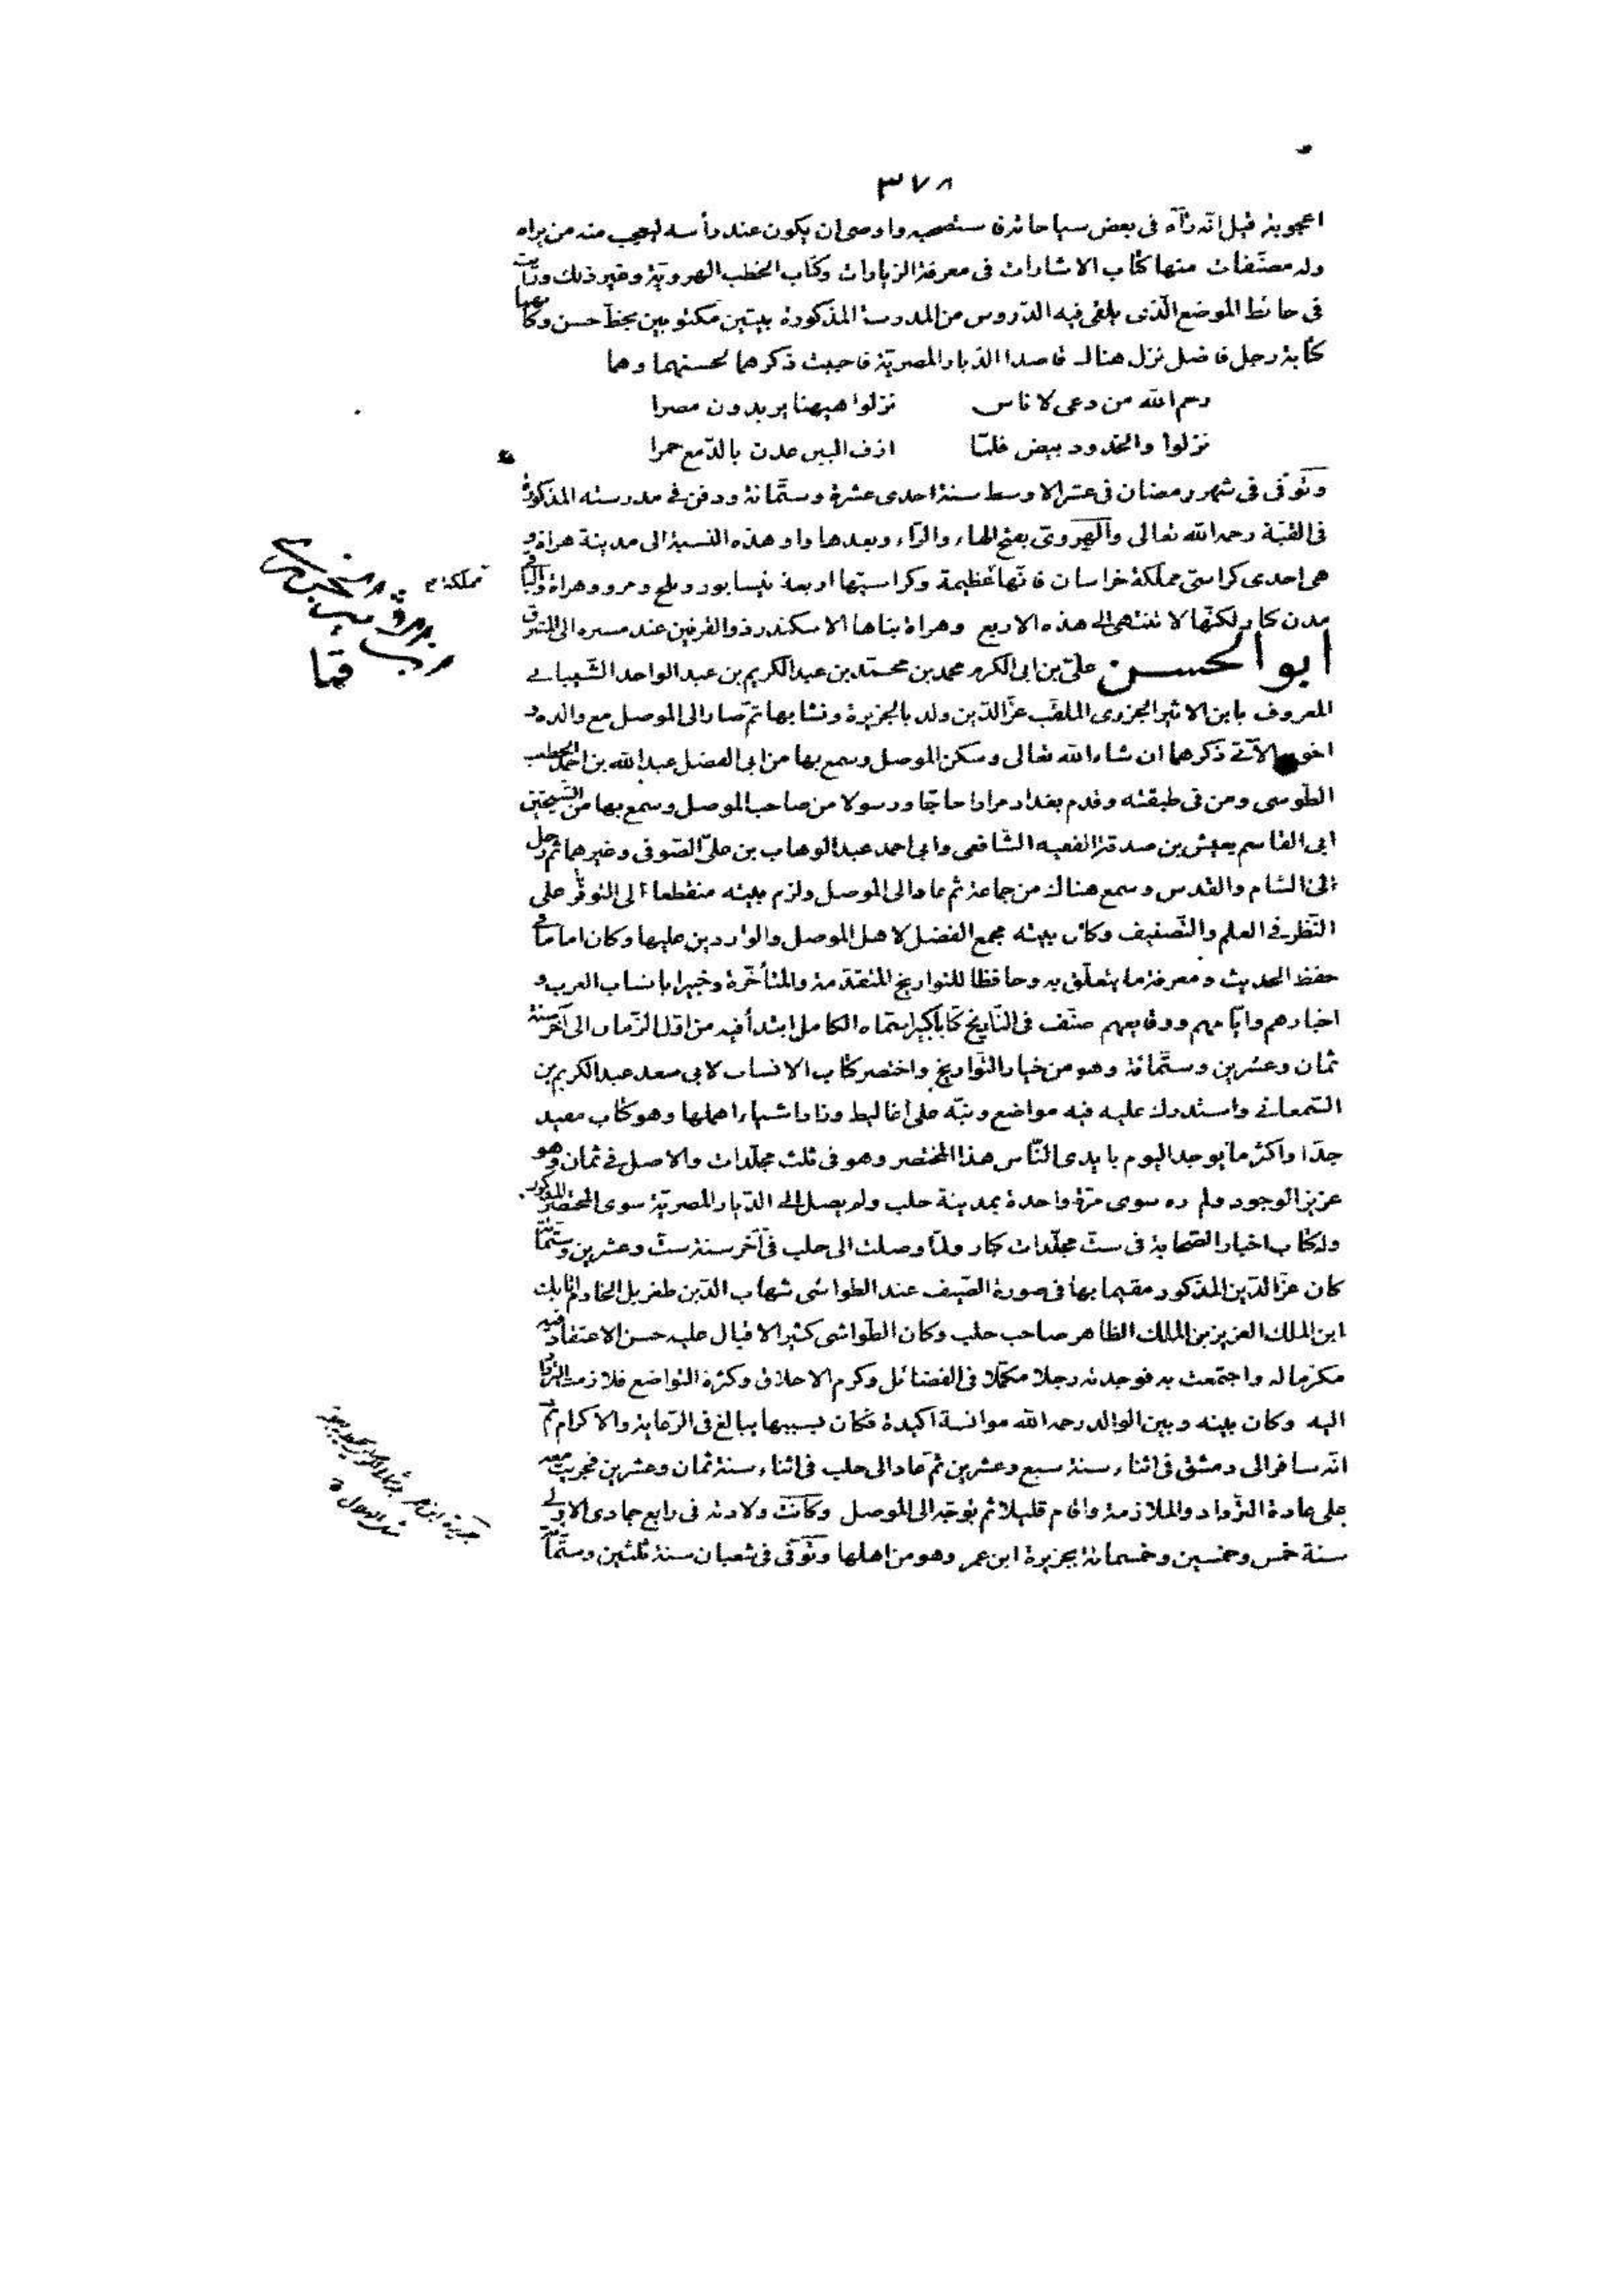 ٣٧٨
اعجوبة قيل انّه رآه فى بعض سياحاته فاستصحبه واوصى ان يكون عند رأسه ليعجب منه من يراه
وله مصنّفات منها كتاب الاشارات فى معرفة الزيارات وكتاب الخطب الهرويّة وغير ذلك ورأيت
فى حائط الموضع الّذى يلقى فيه الدّروس من المدرسة المذكورة بيتين مكتوبين بخطّ حسن وكأنهما
كتابة رجل فاضل نزل هناك قاصدا الدّيار المصريّة فاحببت ذكرهما لحسنهما وهما
رحم الله من دعى لاناس نزلوا هيهنا يريدون مصرا
نزلوا والخدود بيض فلمّا ازف البين عدن بالدّمع حمرا
وتوفّى فى شهر رمضان فى عشر الاوسط سنة احدى عشرة وستّمائة ودفن فى مدرسته المذكورة
فى القبّة رحمه الله تعالى والهروىّ بفتح الهاء والرّاء وبعدها واو هذه النسبة الى مدينة هراة و
هى احدى كراسىّ مملكة خراسان فانّها عظيمة وكراسيّها اربعة نيسابور وبلخ ومرو وهراة والباقى
مدن كبار لكنّها لا تنتهى الى هذه الاربع وهراة بناها الاسكندر ذو القرنين عند مسيره الى المشرق
ابو الحسن علىّ بن ابى الكرم محمد بن محمّد بن عبد الكريم بن عبد الواحد الشّيبانى
المعروف بابن الاثير الجزرى الملقّب عزّ الدّين ولد بالجزيرة ونشأ بها ثمّ صار الى الموصل مع والده و
الآتى ذكرهما ان شاء الله تعالى وسكن الموصل وسمع بها من ابى الفضل عبد الله بن احمد الخطيب
الطّوسى ومن فى طبقته وقدم بغداد مرارا حاجّا ورسولا من صاحب الموصل وسمع بها من الشّيخين
ابى القاسم يعيش بن صدقة الفقيه الشّافعى وابى احمد عبد الوهاب بن علىّ الصّوفى وغيرهما ثمّ رحل
الى الشام والقدس وسمع هناك من جماعة ثم عاد الى الموصل ولزم بيته منقطعا الى التوفّر على
النّظر فى العلم والتّصنيف وكان بيته مجمع الفضل لاهل الموصل والواردين عليها وكان اماما فى
حفظ الحديث ومعرفة ما يتعلّق به وحافظا للتواريخ المتقدّمة والمتأخّرة وخبيرا بانساب العرب و
اخبارهم وايّامهم ووقايعهم صنّف فى التّاريخ كتابا كبيرا سمّاه الكامل ابتدأ فيه من اوّل الزّمان الى آخر سنة
ثمان وعشرين وستّمائة وهو من خيار التّواريخ واختصر كتاب الانساب لابى سعد عبد الكريم بن
السّمعانى واستدرك عليه فيه مواضع ونبّه على اغاليط وزاد اشياء اهملها وهو كتاب مفيد
جدّا واكثر ما يوجد اليوم بايدى النّاس هذا المختصر وهو فى ثلث مجلّدات والاصل فى ثمان وهو
عزيز الوجود ولم اره سوى مرّة واحدة بمدينة حلب ولم يصل الى الدّيار المصريّة سوى المختصر المذكور
وله كتاب اخبار الصّحابة فى ستّ مجلّدات كبار ولمّا وصلت الى حلب فى آخر سنة ستّ وعشرين وستّمائة
كان عزّ الدّين المذكور مقيما بها فى صورة الضّيف عند الطواشى شهاب الدّين طغريل الخادم اتابك
ابن الملك العزيز بن الملك الظاهر صاحب حلب وكان الطّواشى كثير الاقبال عليه حسن الاعتقاد فيه
مكرما له واجتمعت به فوجدته رجلا مكمّلا فى الفضائل وكرم الاخلاق وكثرة التواضع فلازمت التّرداد
اليه وكان بينه وبين الوالد رحمه الله موانسة اكيدة فكان بسببها يبالغ فى الرّعاية والاكرام ثمّ
انّه سافر الى دمشق فى اثناء سنة سبع وعشرين ثمّ عاد الى حلب فى اثناء سنة ثمان وعشرين فجريت معه
على عادة التّرداد والملازمة واقام قليلا ثم توجّه الى الموصل وكانت ولادته فى رابع جمادى الاولى
سنة خمس وخمسين وخمسمائة بجزيرة ابن عمر وهو من اهلها وتوفّى فى شعبان سنة ثلثين وستّمائة
مملكة